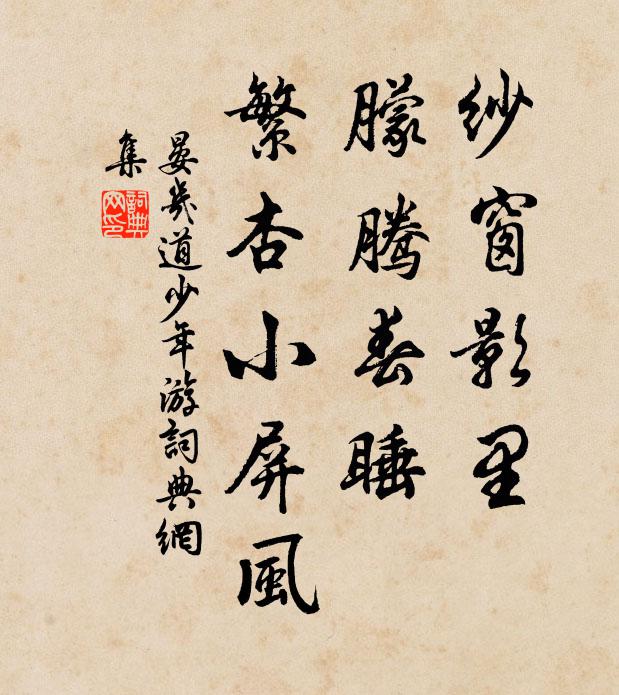 纱窗影里
朦腾春睡
繁杏小屏風
晏幾道少年游詞典網
集
詞典网印